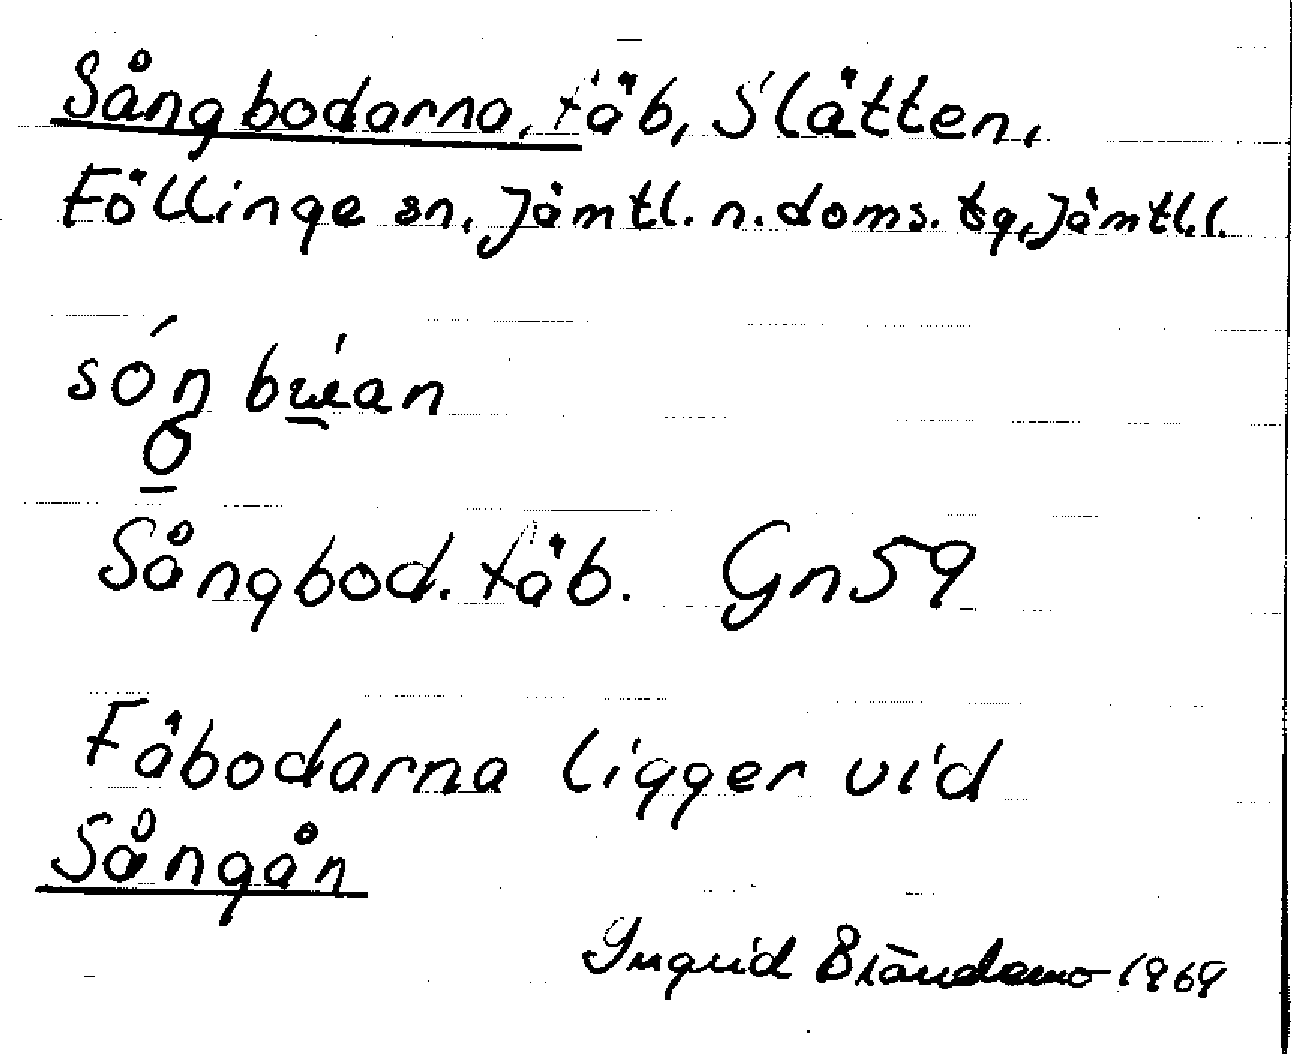 Sångbodarna, fäb, Slätten,
Föllinge sn, Jämtl. n. doms. tg, Jämtl. l.
Sångbod. fäb. Gn 59
Fäbodarna ligger vid
Sångån
Ingrid 1969